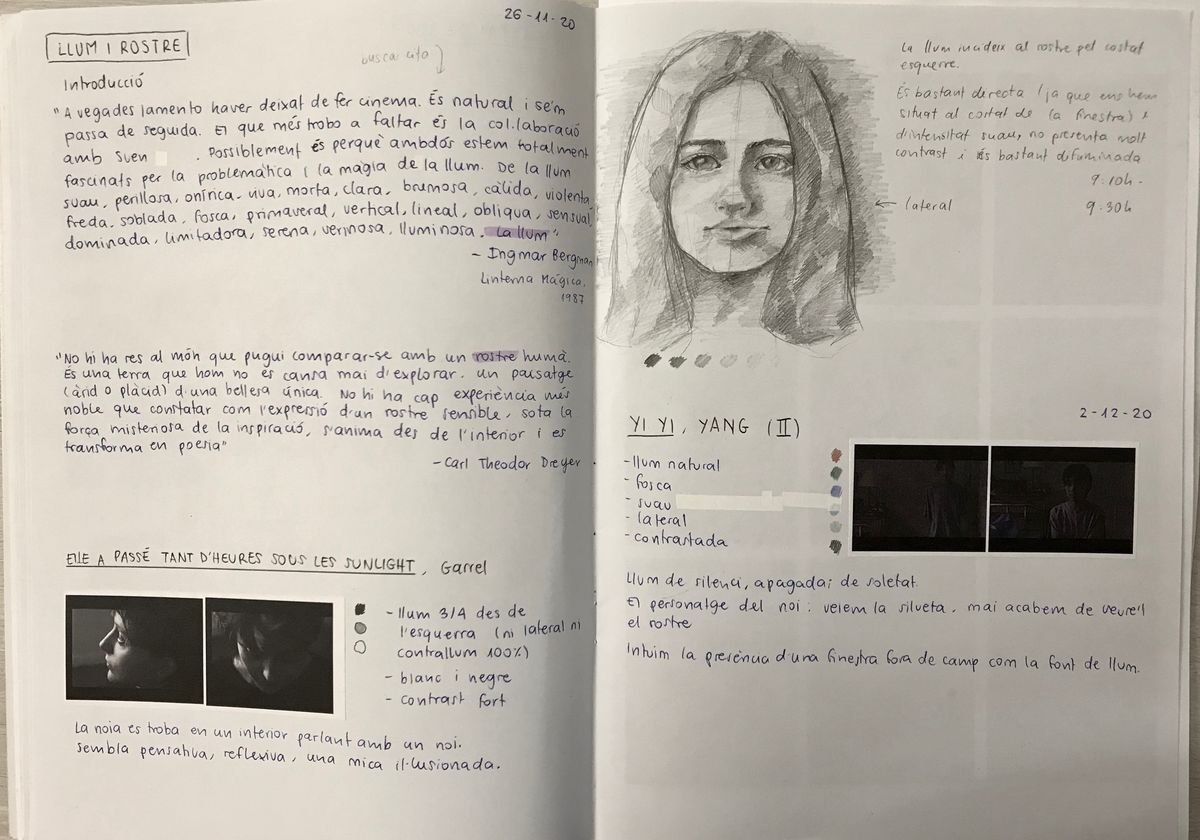 26-11-20
LLUM I ROSTRE
busca cita
Introducció
"A vegades lamento haver deixat de fer cinema. És natural i se'm
passa de seguida. El que més trobo a faltar és la col·laboració
amb Sven . Possiblement és perquè ambdós estem totalment
fascinats per la problemàtica i la màgia de la llum. De la llum
suau, perillosa, onírica, viva, morta, clara, brumosa, càlida, violenta,
freda, soblada, fosca, primaveral, vertical, lineal, obliqua, sensual,
dominada, limitadora, serena, verinosa, lluminosa. La llum"
- Ingmar Bergman
Linterna Mágica,
1987
"No hi ha res al món que pugui comparar-se amb un rostre humà.
És una terra que hom no es cansa mai d'explorar. un paisatge
(àrid o plàcid) d'una bellesa única. No hi ha cap experiència més
noble que constatar com l'expressió d'un rostre sensible, sota la
força misteriosa de la inspiració, s'anima des de l'interior i es
transforma en poesia"
- Carl Theodor Dreyer
ELLE A PASSÉ TANT D'HEURES SOUS LES SUNLIGHT, Garrel
- llum 3/4 des de
l'esquerra (ni lateral ni
contrallum 100%)
- blanc i negre
- contrast fort
La noia es troba en un interior parlant amb un noi.
sembla pensativa, reflexiva, una mica il·lusionada.
La llum incideix al rostre pel costat
esquerre.
És bastant directa (ja que ens hem
situat al costat de la finestra) i
d'intensitat suau, no presenta molt
contrast i és bastant difuminada
9:10h -
9:30h
← lateral
2-12-20
YI YI, YANG (II)
- llum natural
- fosca
- suau
- lateral
- contrastada
Llum de silenci, apagada; de soletat.
El personatge del noi: veiem la silueta, mai acabem de veure'l
el rostre
Intuim la presència d'una finestra fora de camp com la font de llum.